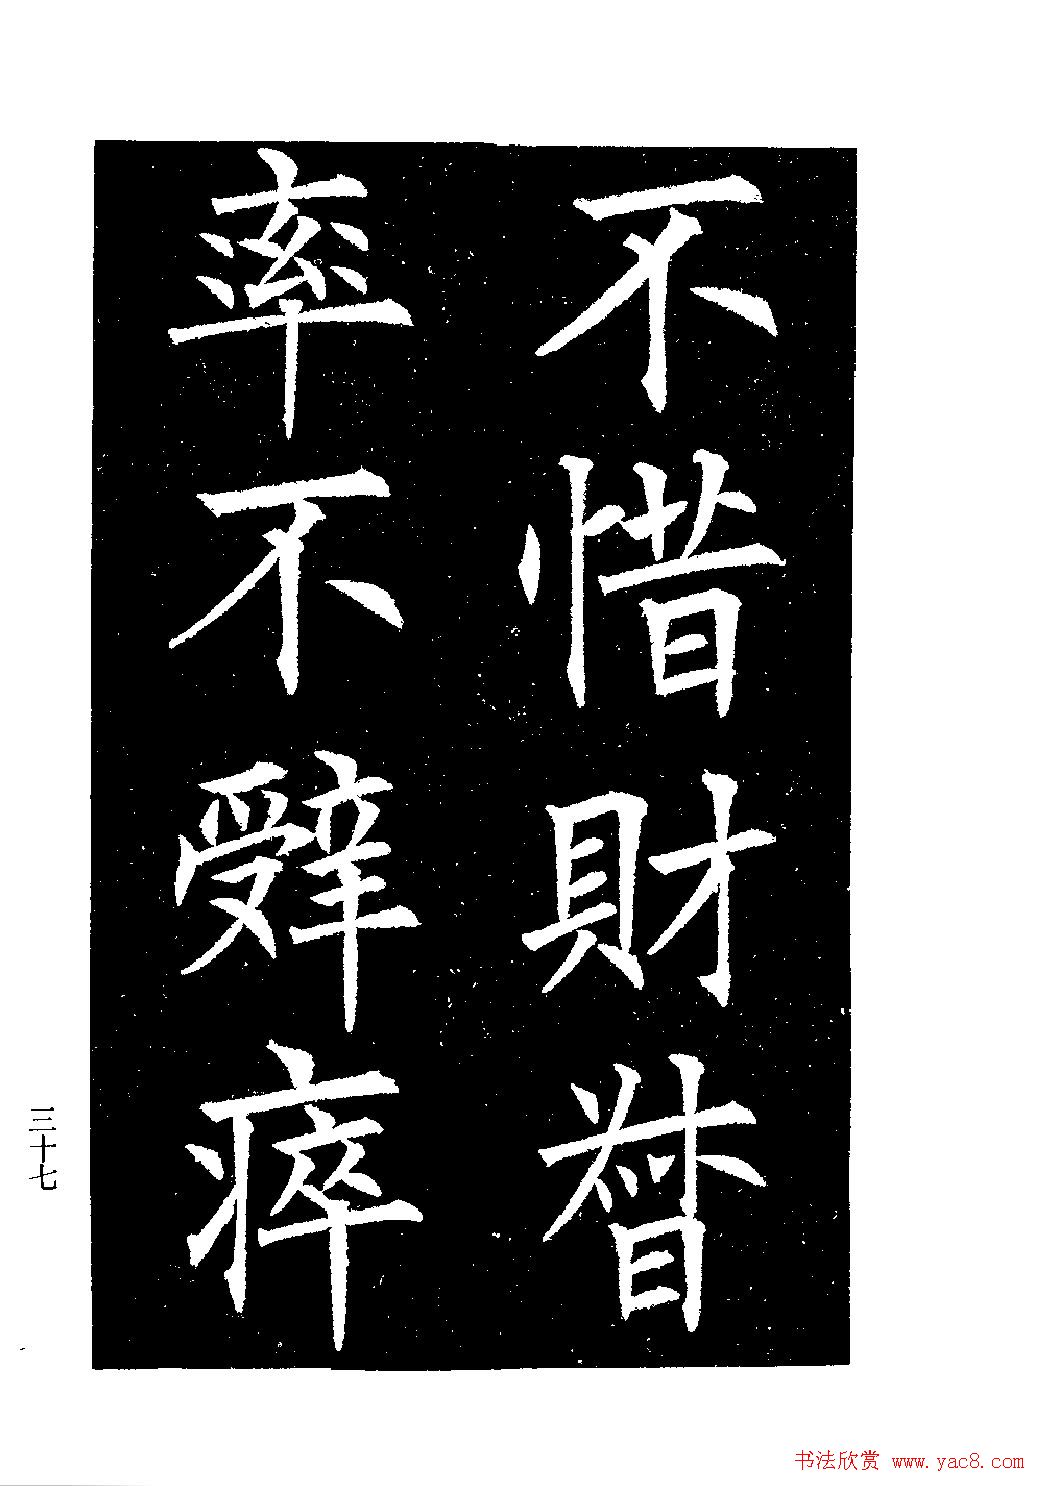 不惜財督
率不辤瘁
三十七
书法欣赏 www.yac8.com